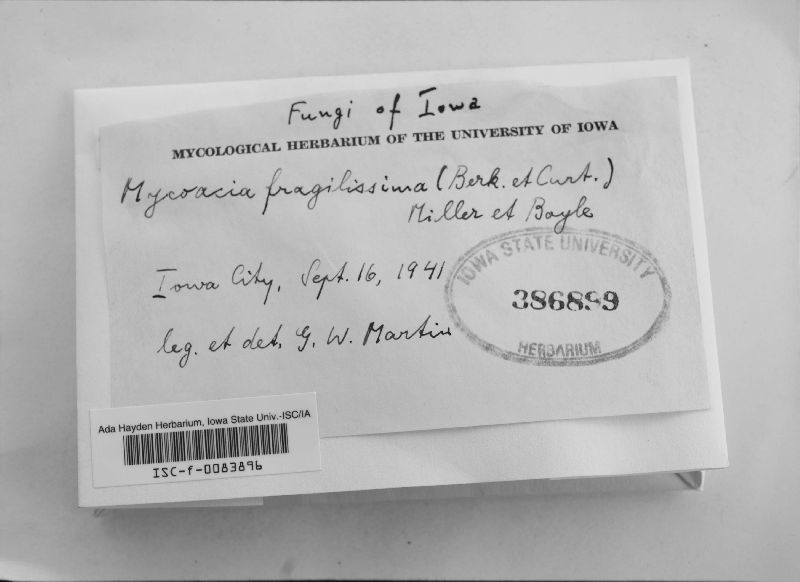 Fungi of Iowa
MYCOLOGICAL HERBARIUM OF THE UNIVERSITY OF IOWA
Mycoacia fragilissima (Berk. et Curt.)
Miller et Boyle
Iowa City, Sept. 16, 1941
leg. et det. G. W. Martin
IOWA STATE UNIVERSITY
386899
HERBARIUM
Ada Hayden Herbarium, Iowa State Univ.-ISC/IA
ISC-f-0083896